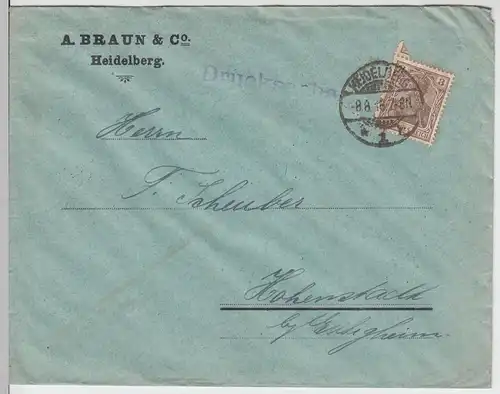 A. BRAUN & Co.
Heidelberg.
Drucksache
HEIDELBERG
-8.8. 7-8N.
* 1
Herrn
F. Scheuber
Hohenstadt